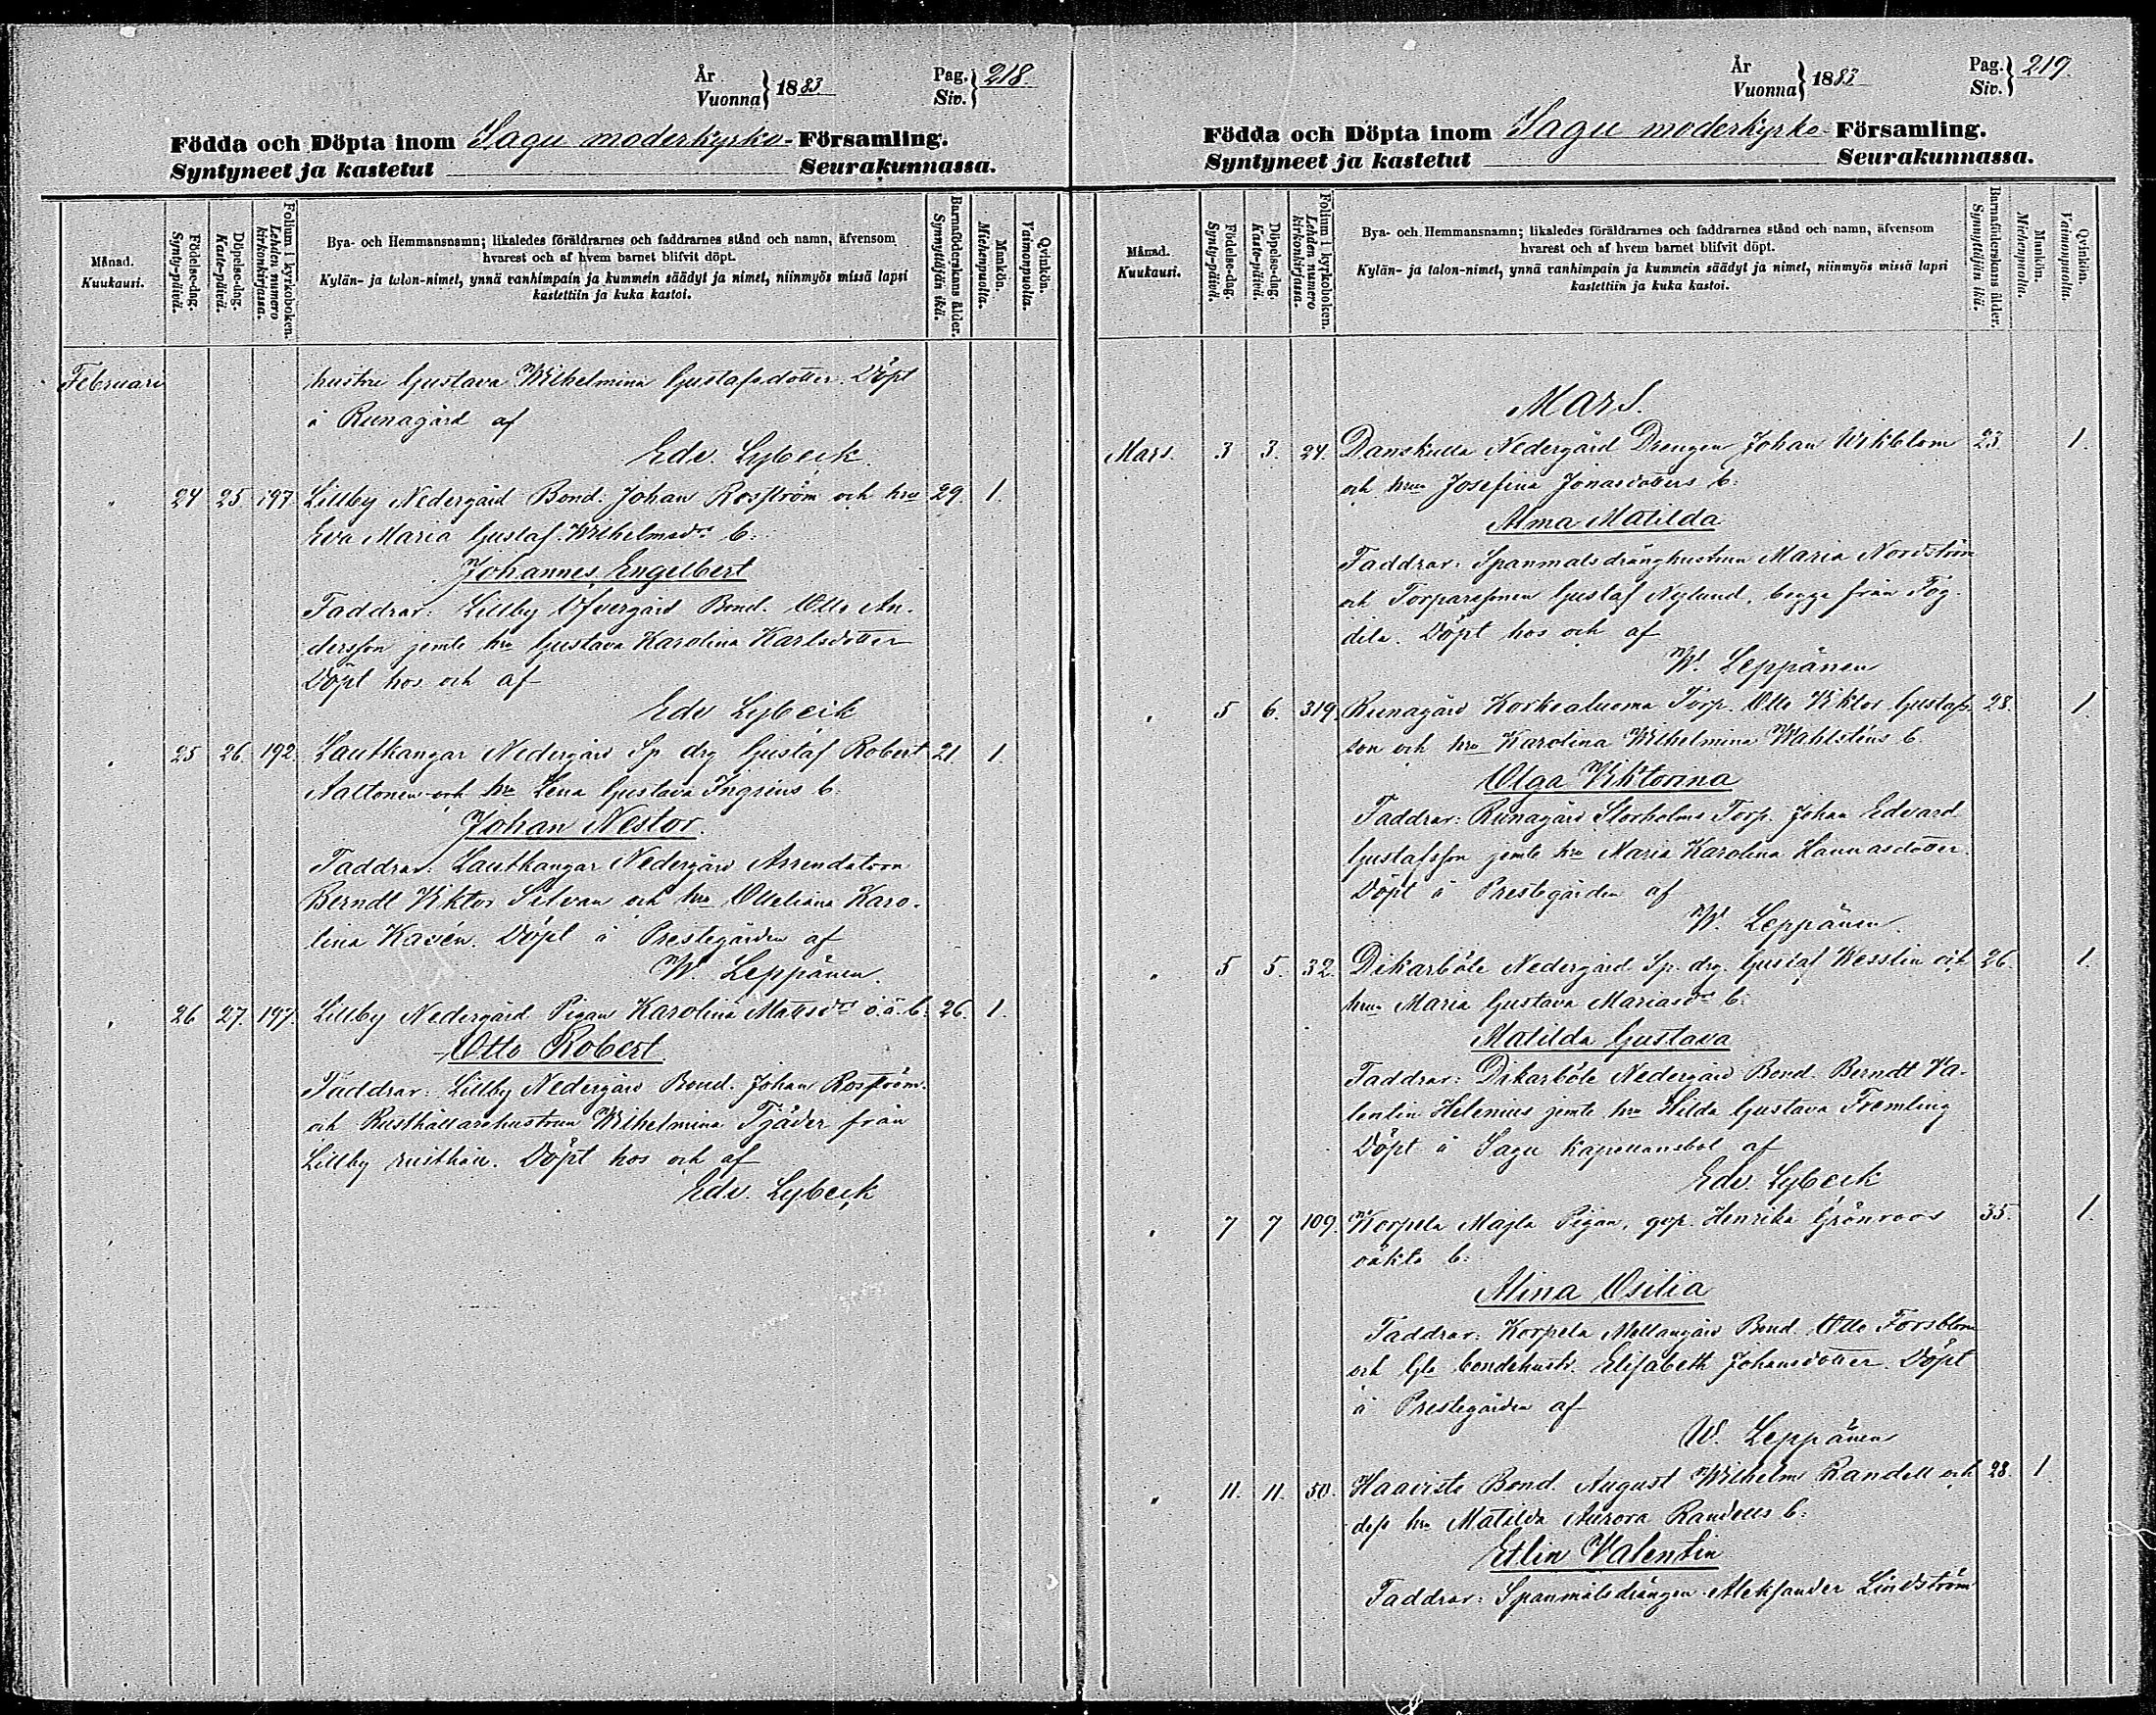 År
Vuonna } 1883
Pag.
Siv. } 218.
Födda och Döpta inom Sagu moderkyrko-Församling.
Syntyneet ja kastetut Seurakunnassa.
Månad.
Kuukausi.
Födelse-dag.
Synty-päivä.
Döpelse-dag.
Kaste-päivä.
Folium i kyrkoboken.
Lehden numero kirkonkirjassa.
Bya- och Hemmansnamn; likaledes föräldrarnes och faddrarnes stånd och namn, äfvensom
hvarest och af hvem barnet blifvit döpt.
Kylän- ja talon-nimet, ynnä vanhimpain ja kummein säädyt ja nimet, niinmyös missä lapsi
kastettiin ja kuka kastoi.
Barnaföderskans ålder.
Synnyttäjän ikä.
Mankön.
Miehenpuolta.
Qvinkön.
Vaimonpuolta.
Februari hustru Gustava Wilhelmina Gustafsdotter. Döpt
å Runagård af
Edv. Lybeck.
" 24 25 197 Lillby Nedergård Bond. Johan Rosström och hru 29. 1.
Eva Maria Gustaf Wilhelmsdr b:
Johannes Engelbert
Faddrar: Lillby Öfvergård Bond. Otto An-
dersson jemte hru Gustava Karolina Karlsdotter
Döpt hos och af
Edv Lybeck
" 25 26. 192. Lautkangar Nedergård Sp drg Gustaf Robert 21. 1.
Aaltonen och hru Lena Gustava Ingrius b:
Johan Nestor.
Faddrar: Lautkangar Nedergård Arrendatorn
Berndt Viktor Silvan och hru Ottiliana Karo-
lina Kavén. Döpt å Prestegården af
W. Leppänen.
" 26 27. 197. Lillby Nedergård Pigan Karolina Mattsdr o.ä. b: 26. 1.
Otto Robert.
Faddrar: Lillby Nedergård Bond. Johan Rosström
och Rusthållarehustrun Wilhelmina Tjäder från
Lillby rusthåll. Döpt hos och af
Edv. Lybeck
År
Vuonna } 1883
Pag.
Siv. } 219.
Födda och Döpta inom Sagu moderkyrko-Församling.
Syntyneet ja kastetut Seurakunnassa.
Månad.
Kuukausi.
Födelse-dag.
Synty-päivä.
Döpelse-dag.
Kaste-päivä.
Folium i kyrkoboken.
Lehden numero kirkonkirjassa.
Bya- och Hemmansnamn; likaledes föräldrarnes och faddrarnes stånd och namn, äfvensom
hvarest och af hvem barnet blifvit döpt.
Kylän- ja talon-nimet, ynnä vanhimpain ja kummein säädyt ja nimet, niinmyös missä lapsi
kastettiin ja kuka kastoi.
Barnaföderskans ålder.
Synnyttäjän ikä.
Mankön.
Miehenpuolta.
Qvinkön.
Vaimonpuolta.
Mars.
Mars. 3 3. 24. Danskulla Nedergård Drengen Johan Wikblom 23 1.
och hrus Josefina Jonasdotters b:
Alma Matilda
Faddrar: Spanmalsdränghustrun Maria Nordström
och Torparesonen Gustaf Nylund, begge från Tög-
dila. Döpt hos och af
W. Leppänen
" 5 6. 319. Runagård Korkealuoma Torp. Otto Viktor Gustafs- 28. 1.
son och hru Karolina Wilhelmina Wahlsténs b.
Olga Viktorina
Faddrar: Runagård Storholms Torp. Johan Edvard
Gustafsson jemte hru Maria Karolina Hannasdotter.
Döpt å Prestegården af
W. Leppänen.
" 5 5. 32. Dikarböle Nedergård Sp. drg. Gustaf Wesslin och 26. 1.
hrus Maria Gustava Mariasdr b:
Matilda Gustava
Faddrar: Dikarböle Nedergård Bond. Berndt Va-
lentin Helenius jemte hru Hilda Gustava Fremling
Döpt å Sagu kapellansbol af
Edv. Lybeck
" 7 7 109. Korpela Majla Pigan, gvp. Henrika Grönroos 35. 1.
oäkta b:
Alina Osilia
Faddrar: Korpela Mellangård Bond. Otto Forsblom
och Gla bondehustr. Elisabeth Johansdotter. Döpt
å Prestegården af
W. Leppänen
" 11. 11. 50. Haavisto Bond. August Wilhelm Randell och 28. 1.
dess hru Matilda Aurora Randells b:
Etlin Valentin
Faddrar: Spanmålsdrängen Aleksander Lindström